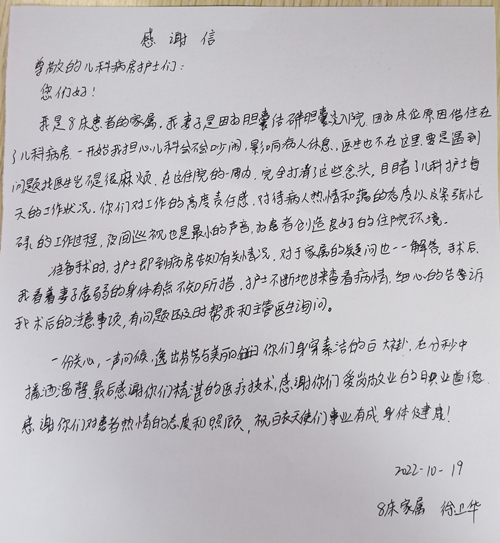 感谢信
尊敬的儿科病房护士们：
您们好！
我是8床患者的家属，我妻子是因为胆囊结石胆囊炎入院，因为床位原因借住在
了儿科病房，一开始我担心儿科会不会吵闹，影响病人休息，医生也不在这里，要是遇到
问题找医生岂不是很麻烦，在这住院的一周内，完全打消了这些念头，目睹了儿科护士每
天的工作状况，你们对工作的高度责任感，对待病人热情和蔼的态度以及紧张忙
碌的工作过程，夜间巡视也是最小的声音，为患者创造良好的住院环境。
准备手术时，护士即到病房告知有关情况，对于家属的疑问也一一解答，手术后，
我看着妻子虚弱的身体有点不知所措，护士不断地过来查看病情，细心的告诉
我术后的注意事项，有问题及时帮我和主管医生询问。
一份关心，一声问候，透出芬芳与美丽 你们身穿素洁的白大褂，在分秒中
播洒温馨，最后感谢你们精湛的医疗技术，感谢你们爱岗敬业的职业道德
感谢你们对患者热情的态度和照顾，祝白衣天使们事业有成 身体健康！
2022-10-19
8床家属 徐卫华